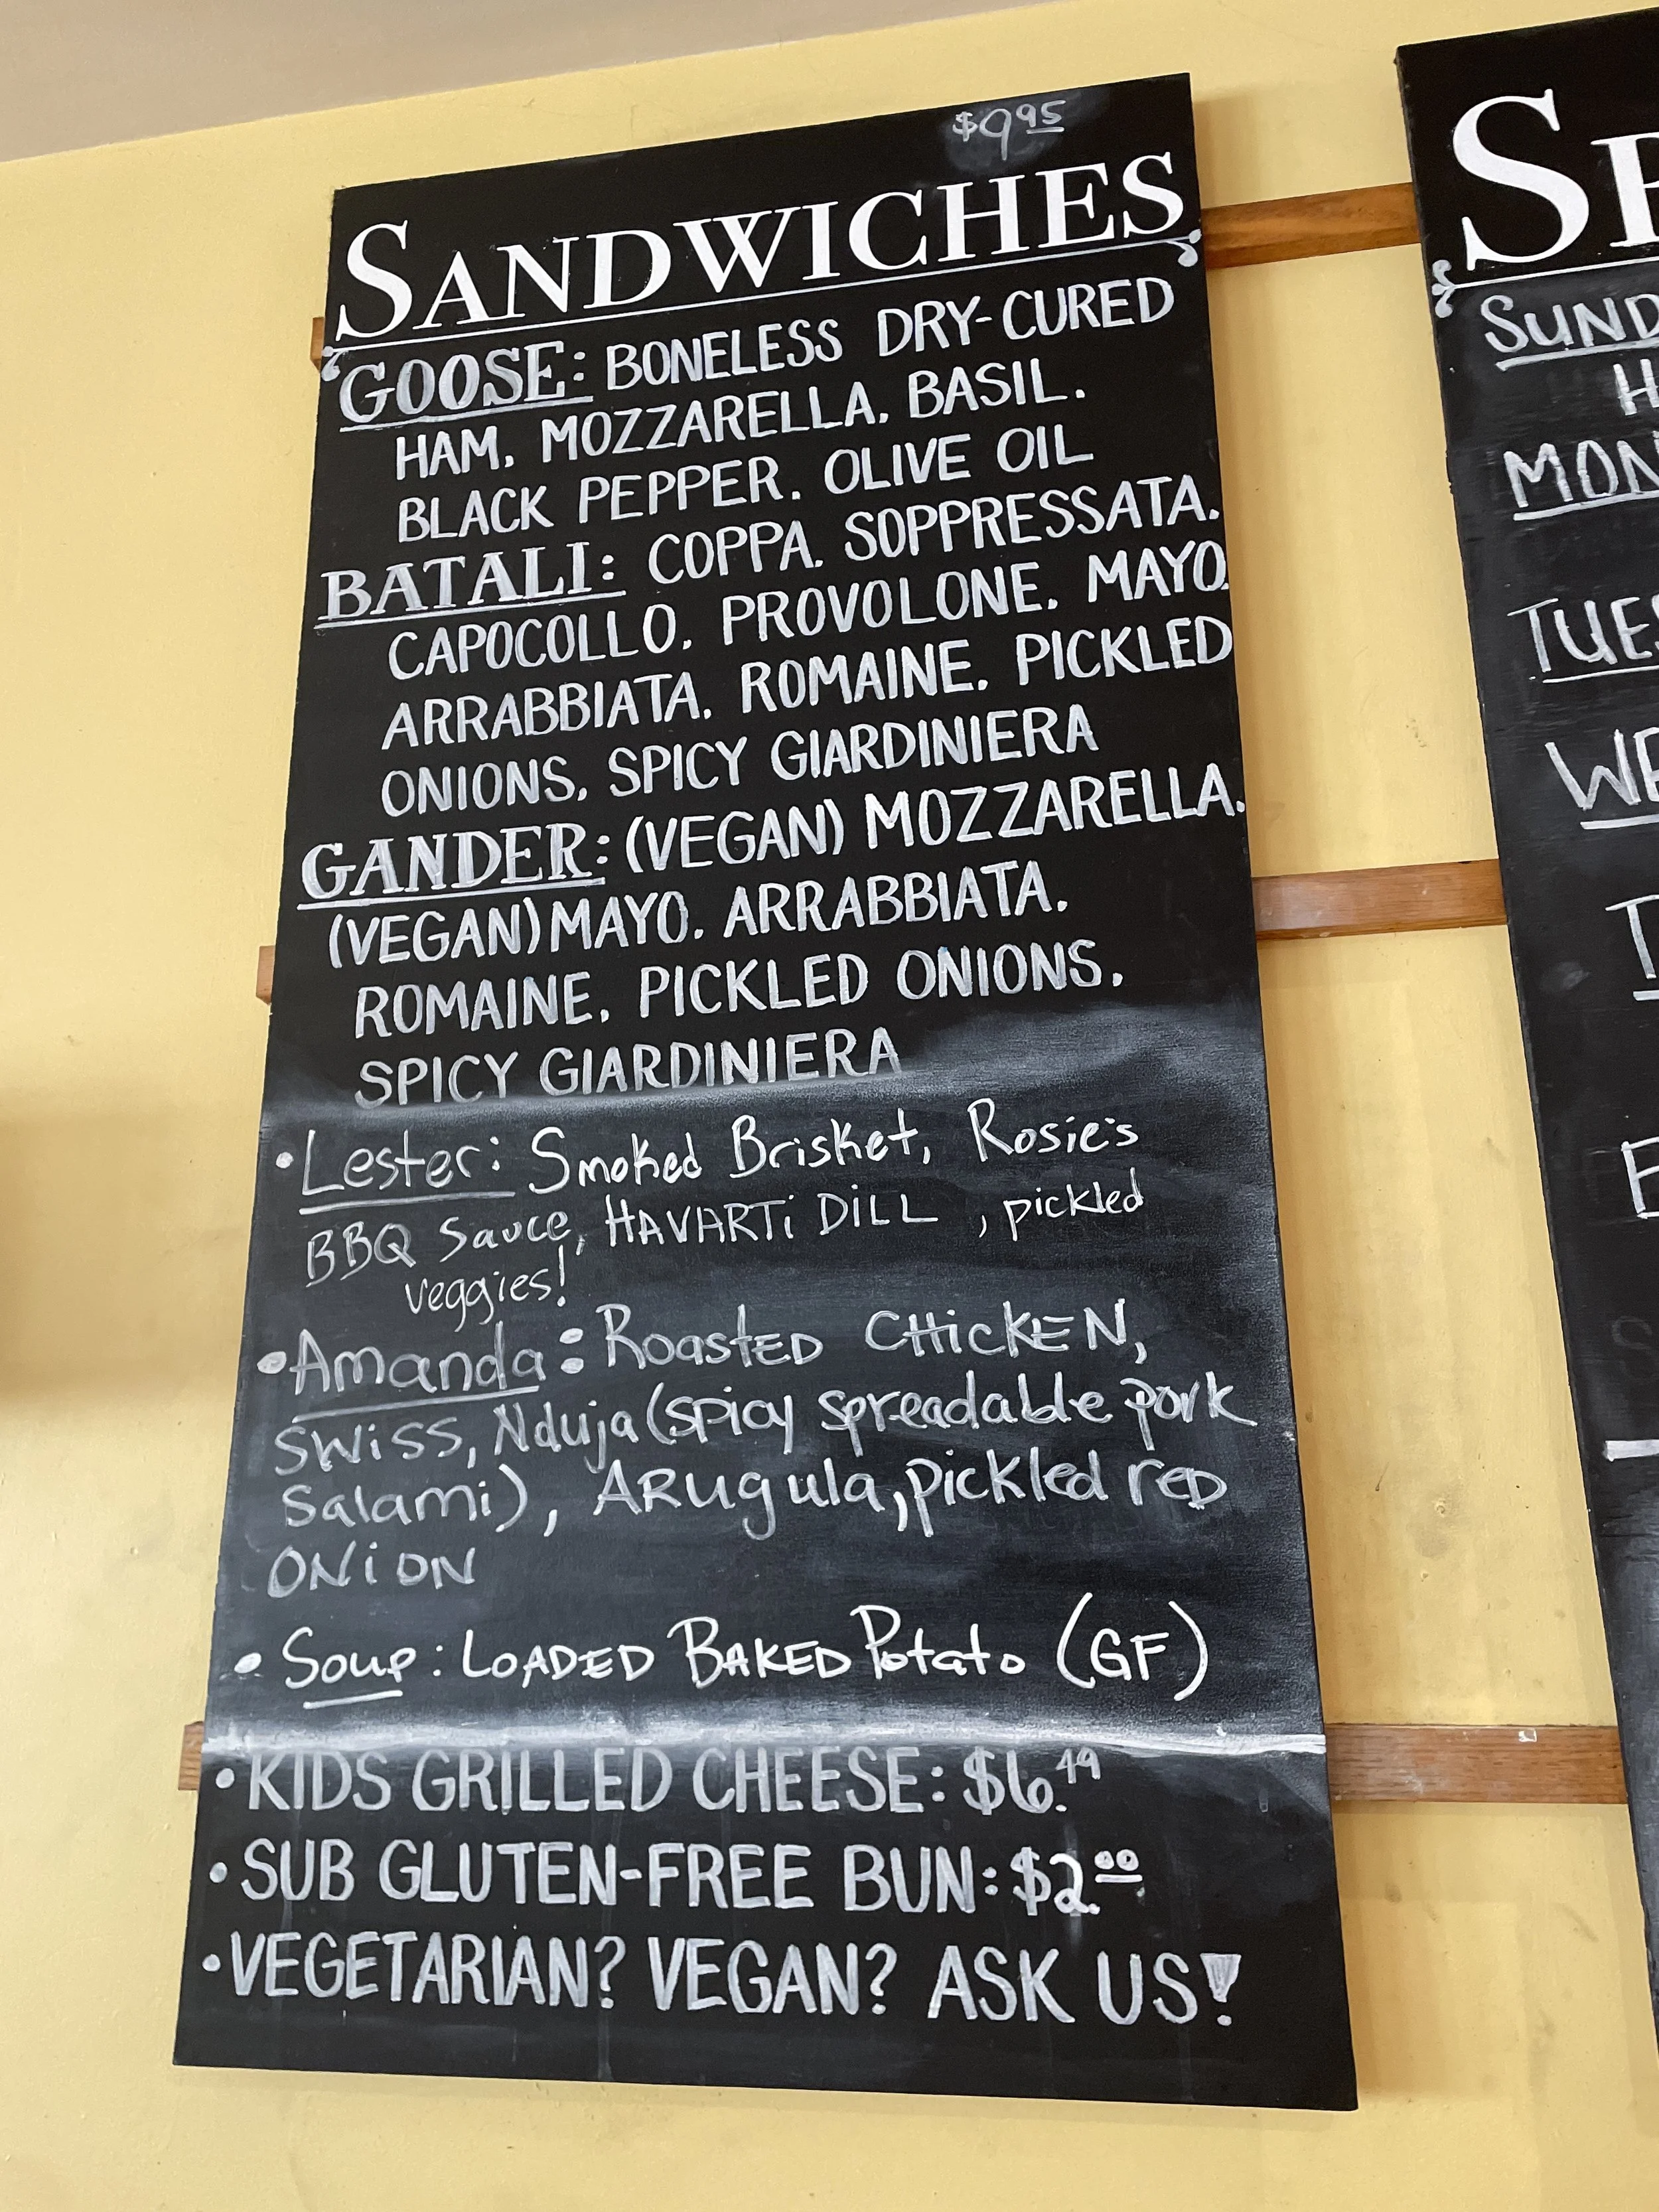 $9.95
SANDWICHES
GOOSE: BONELESS DRY-CURED
HAM. MOZZARELLA. BASIL.
BLACK PEPPER. OLIVE OIL
BATALI: COPPA. SOPPRESSATA.
CAPOCOLLO. PROVOLONE. MAYO.
ARRABBIATA. ROMAINE. PICKLED
ONIONS. SPICY GIARDINIERA
GANDER: (VEGAN) MOZZARELLA.
(VEGAN) MAYO. ARRABBIATA.
ROMAINE. PICKLED ONIONS.
SPICY GIARDINIERA
•Lester: Smoked Brisket, Rosie's
BBQ Sauce, HAVARTi DiLL , pickled
veggies!
•Amanda: RoastED CHicKEN,
SWiSS, Nduja (spicy spreadable pork
Salami), ARugula, pickled reD
ONiON
• Soup: LOADED BAKED Potato (GF)
•KIDS GRILLED CHEESE: $6.49
•SUB GLUTEN-FREE BUN: $2.00
•VEGETARIAN? VEGAN? ASK US!
SUND
MON
TUES
WE